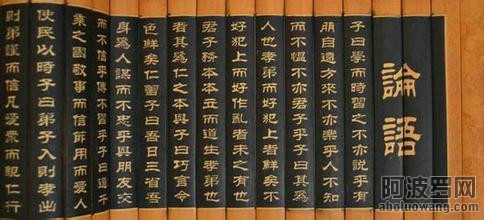 論語
子曰學而時習之不亦説乎有
朋自遠方來不亦樂乎人不知
而不慍不亦君子乎有子曰其為
人也孝弟而好犯上者鮮矣不
好犯上而好作亂者未之有也
君子務本本立而道生孝弟也
者其為仁之本與子曰巧言令
色鮮矣仁曾子曰吾日三省吾
身為人謀而不忠乎與朋友交
而不信乎傳不習乎子曰道千
乘之國敬事而信節用而愛人
使民以時子曰弟子入則孝出
則弟謹而信凡愛衆而親仁行
阿波罗网
aboluowang.com